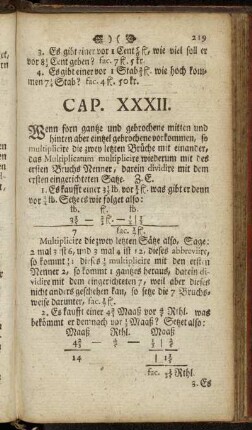 219
3. Es gibt einer vor 1 Cent ff. wie viel soll er
vor 8 Cent geben? fac. 7 fl. 5 kr.
4. Es gibt einer vor 1 Stab fl. wie hoch kom-
men 7 Stab? fac. 4 fl. 50 kr.
CAP. XXXII.
Wenn forn gantze und gebrochene mitten und
hinten aber eintzel gebrochene vorkommen, so
multiplicire die zwey letzten Brüche mit einander,
das Multiplicatum multiplicire wiederum mit des
ersten Bruchs Nenner, darein dividire mit dem
ersten eingerichteten Satze. Z. E.
1. Es kaufft einer lb. vor fl. was gibt er denn
vor lb. Setze es wie folget also:
lb. fl. lb.
7 fac. fl.
Multiplicire die zwey letzten Sätze also, Sage:
2 mal 3 ist 6, und 3 mal 4 ist 12. dieses abbrevire,
so kommt dieses multiplicire mit den ersten
Nenner 2, so kommt 1 gantzes heraus, darein di-
vidire mit dem eingerichteten 7, weil aber dieses
nicht anders geschehen kan, so setze die 7 Bruchs-
weise darunter, fac. fl.
2. Es kaufft einer Maaß vor Rthl. was
bekömmt er dennach vor Maaß? Setzet also:
Maaß Rthl. Maaß
14
fac. Rthl.
3. Es